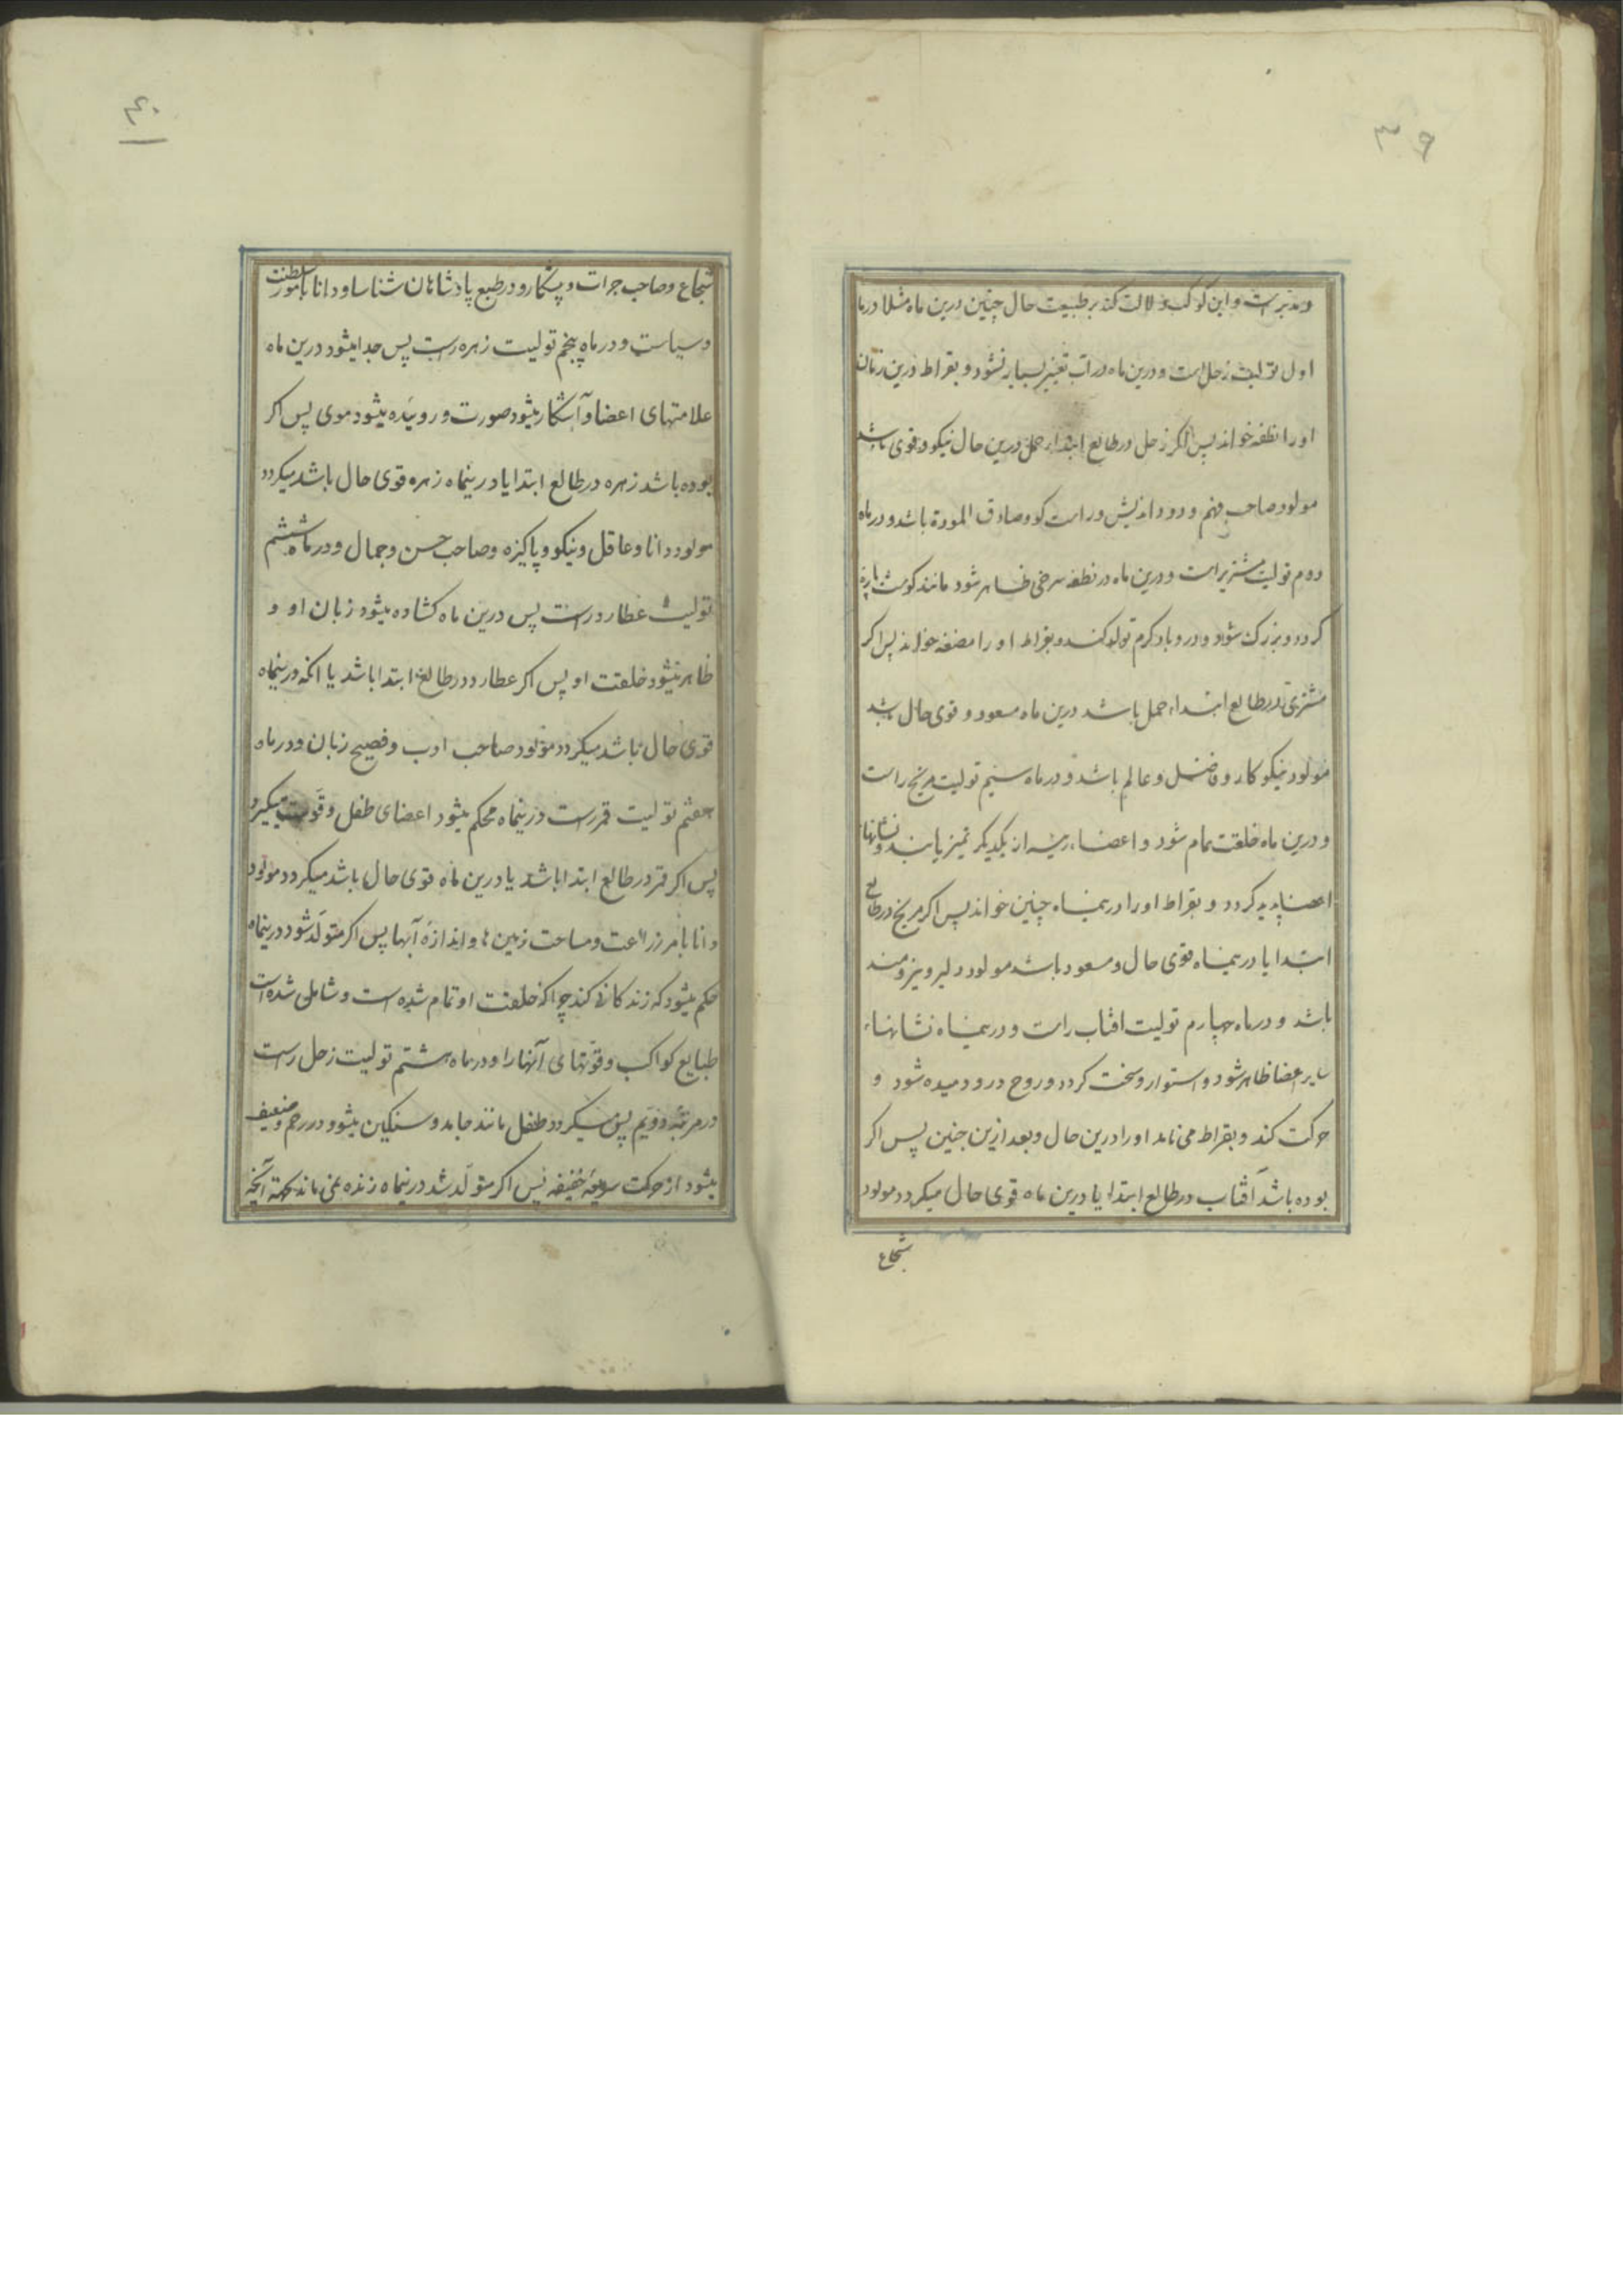 ۳۹
و مدبرست و این کوکب دلالت کند بر طبیعت حال جنین درین ماه مثلا در ماه
اول تولیت زحل است و درین ماه در آب تغییر بسیار نشود و بقراط درین زمان
او را نطفه خواند پس اکر زحل در طالع ابتداء حمل درین حال نیکو و قوی باشد
مولود صاحب فهم و دور اندیش و راست کو و صادق المودة باشد و در ماه
دوم تولیت مشتریراست و درین ماه در نطفه سرخی ظاهر شود مانند کوشت پارۀ
کردد و بزرک شود و درو باد کرم تولد کند و بقراط او را مضغه خواند پس اکر
مشتری در طالع ابتداء حمل باشد درین ماه مسعود و قوی حال باشد
مولود نیکو کار و فاضل و عالم باشد و در ماه سیم تولیت مریخ راست
و درین ماه خلقت تمام شود و اعضاء رئیسه از یکدیکر تمیز یابند و نشانها
اعضا پدید کردد و بقراط او را درینماه جنین خواند پس اکر مریخ در طالع
ابتدا یا درینماه قوی حال و مسعود باشد مولود دلیر و نیرومند
باشد و در ماه چهارم تولیت افتاب راست و درینماه نشانهاء
سایر اعضا ظاهر شود و استوار و سخت کردد و روح درو دمیده شود و
حرکت کند و بقراط می نامد او را درین حال و بعد ازین جنین پس اکر
بوده باشد آفتاب در طالع ابتدا یا درین ماه قوی حال میکردد مولود
شجاع
۴۰
شجاع و صاحب جرات و پیشکار و در طبع پادشاهان شناسا و دانا بامور سلطنت
و سیاست و در ماه پنجم تولیت زهره راست پس جدا میشود درین ماه
علامتهای اعضا و آشکار میشود صورت و روییده میشود موی پس اکر
بوده باشد زهره در طالع ابتدا یا درینماه زهره قوی حال باشد میکردد
مولود دانا و عاقل و نیکو و پاکیزه و صاحب حسن و جمال و در ماه ششم
تولیت عطارد راست پس درین ماه کشاده میشود زبان او و
ظاهر میشود خلقت او پس اکر عطارد در طالع ابتدا باشد یا انکه درینماه
قوی حال باشد میکردد مولود صاحب ادب و فصیح زبان و در ماه
هفتم تولیت قمر راست درینماه محکم میشود اعضای طفل و قوت میکیرد
پس اکر قمر در طالع ابتدا باشد یا درین ماه قوی حال باشد میکردد مولود
دانا بامر زراعت و مساحت زمین ها و اندازۀ آبها پس اکر متولد شود درینماه
حکم میشود که زندکانی کند چرا که خلقت او تمام شده است و شامل شده است
طبایع کواکب و قوتهای آنها را و در ماه هشتم تولیت زحل راست
در مرتبۀ دویم پس میکردد طفل مانند جامد و سنکین میشود در رحم و ضعیف
میشود از حرکت سریعۀ خفیفه پس اکر متولد شد درینماه زنده نمی ماند بجهة آنکه